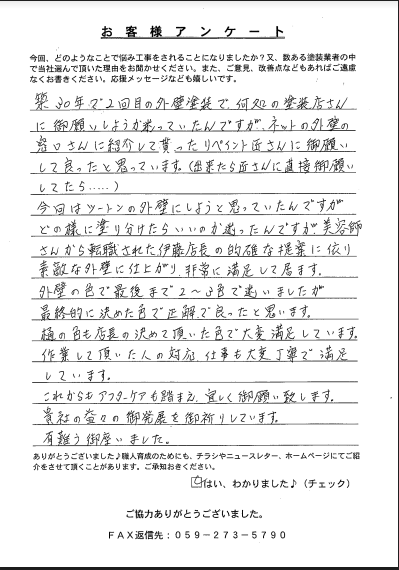 お客様アンケート
今回、どのようなことで悩み工事をされることになりましたか？又、数ある塗装業者の中
で当社選んで頂いた理由をお聞かせください。また、ご意見、改善点などもあればご遠慮
なくお書きください。応援メッセージなども嬉しいです。
築30年で2回目の外壁塗装で、何処の塗装店さん
に御願いしようか迷っていたんですが、ネットの外壁の
窓口さんに紹介して貰ったリペイント匠さんに御願い
して良ったと思っています。(出来たら匠さんに直接御願い
してたら.....)
今回はツートンの外壁にしようと思っていたんですが
どの様に塗り分けたらいいのか迷ったんですが美容師
さんから転職された伊藤店長の的確な提案に依り
素敵な外壁に仕上がり、非常に満足して居ます。
外壁の色で最後まで2〜3色で迷いましたが
最終的に決めた色で正解で良ったと思います。
樋の色も店長の決めて頂いた色で大変満足しています。
作業して頂いた人の対応、仕事も大変丁寧で満足
しています。
これからもアフターケアも踏まえ、宜しく御願い致します。
貴社の益々の御発展を御祈りしています。
有難う御座いました。
ありがとうございました♪職人育成のためにも、チラシやニュースレター、ホームページにてご紹
介をさせて頂くことがあります。ご承知おきください。
はい、わかりました♪（チェック）
ご協力ありがとうございました。
ＦＡＸ返信先：０５９－２７３－５７９０